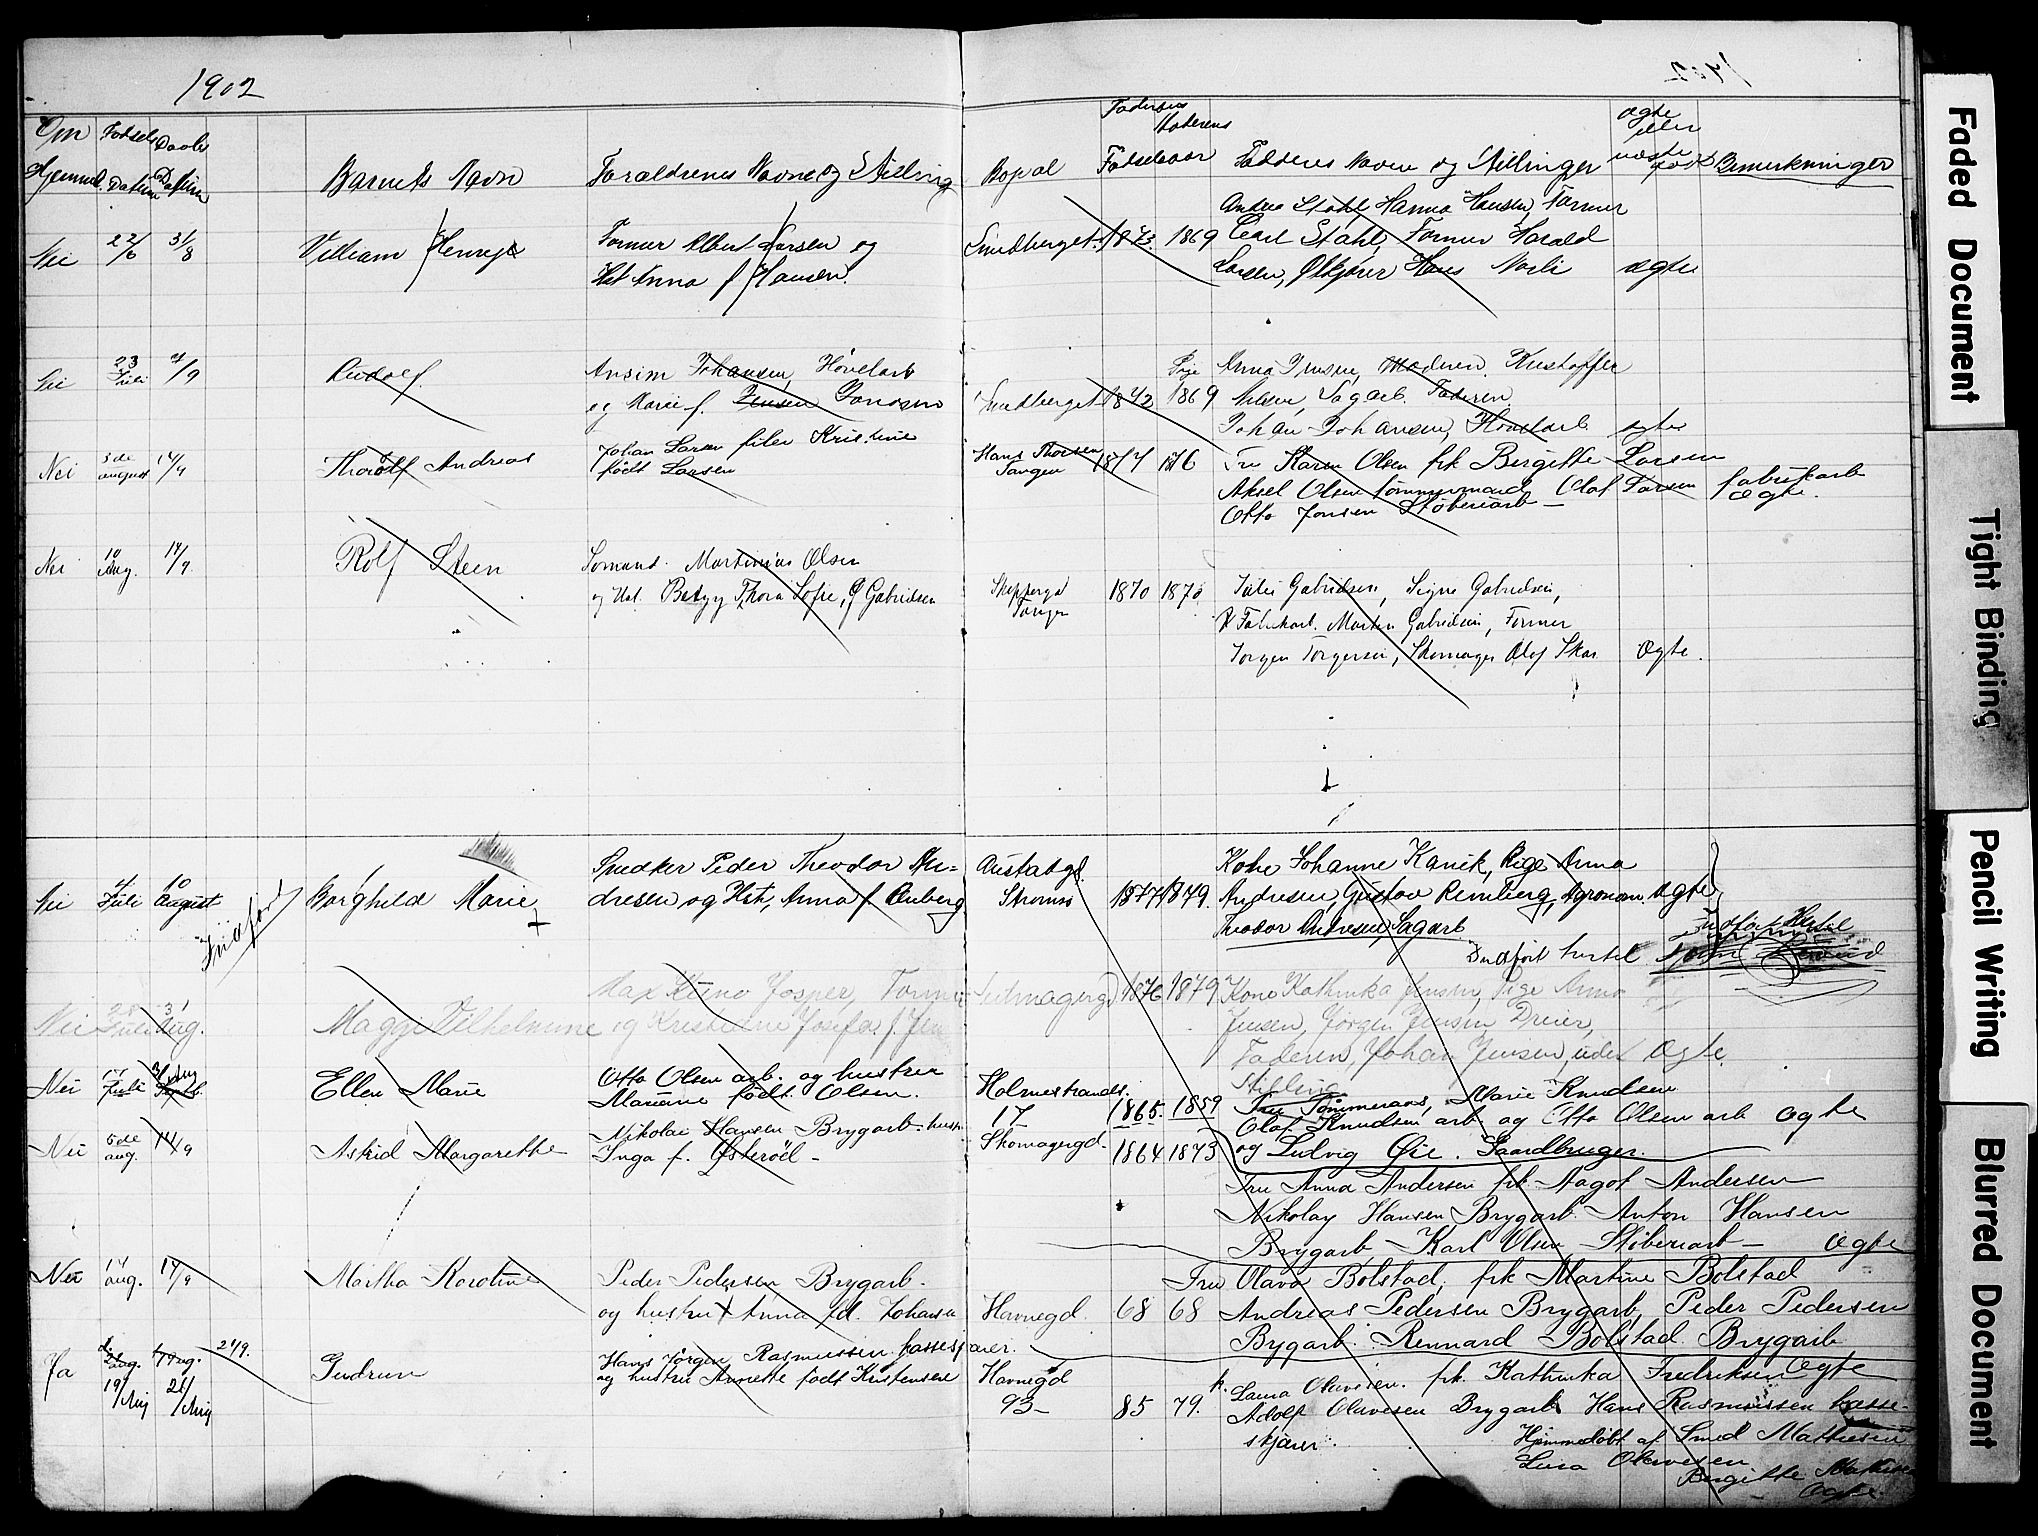 1902
Om Hjemmed.
Fødsels Datum
Daabs Datum
Barnets Navn
Forældrenes Navne og Stilling
Bopæl
Faderens Moderens
Fødselsaar
Fadderes Navne og Stillinger
ægte eller uægte født
Bemærkninger
Nei 22/6 31/8 Villiam Henry
Former Albert Larsen og
Hst Anna f Hansen.
Smedberget 1873 1869
Andrea Stahl, Hanna Hansen, Former
Carl Stahl, Former Harald
Larsen, Hans Morli ægte
Nei 23 Juli 7/9 Rudolf
Ansim Johansen, Høvelarb
og Marie f. Jensen
Smedberget 1842 1869
Pige Anna Jensen, Moderen, Kristoffer
Sagarb. Faderen
Johan Johansen, Høvelarb ægte
Nei 3de august 14/9 Thorolf Andreas
Johan Larsen filer Kristine
født Larsen
Hans Thorsen
Tangen 1874 1876
Fru Karen Olsen frk Bergitte Larsen
Aksel Olsen tømmermand Olaf Larsen fabrikarb
Otto Jonsen Støberiarb — Ægte.
Nei 10 Aug. 14/9 Rolf Steen
Sømand. Martinius Olsen
og Hst. Betzy Thora Sofie, f Gabrielsen
Skippergd
Tangen 1870 1870
Julie Gabrielsen, Signe Gabrielsen,
Fabrikarb. Martin Gabrielsen, Former
Jørgen Torgersen, Skomager Olaf Skar Ægte.
Nei 4 Juli 10 August Borghild Marie
Indført
Snedker Peder Theodor An=
dresen og Hst, Anna f Enberg
Austadgd.
Strømsø 1877 1879.
Kone Johanne Kanik, Pige Anna
Andresen, Gustav Rimberg, Agronom. ægte
Theodor Andresen, Sagarb
Indført hertil
Indført Hertil
Nei 28 Juli 31 Aug. Maggi Vilhelmine
Max Kuno Josper, Former
og Kristiane Josefa f. Jen
1876 1879
Kone Kathinka Jensen, Pige Anna
Jensen, Jørgen Jensen Dreier,
Faderen, Johan Jensen, uden Ægte
Stilling
Nei 14 Juli 31 Aug Ellen Marie
Otto Olsen arb. og hustru
Mariane født Olsen.
Holmestrands.
17 1865. 1859
Fru Tømmeraas, Marie Knudsen
Olaf Knudsen arb og Otto Olsen arb Ægte
og Ludvig Øie. Gaardbruger.
Nei 5de aug. 14/9 Astrid Margarethe
Nikolai Hansen Brygarb. hust.
Inga f. Østerød —
Skomagergd. 1864 1873
Fru Anna Andersen frk Aagot Andersen
Nikolay Hansen Brygarb. Anton Hansen
Brygarb — Karl Olsen — Støberiarb — Ægte
Nei 14 aug. 14/9 Martha Karoline
Peder Pedersen Brygarb.
og hustru Anna fd. Johansen
Havnegd. 68 68
Fru Olava Bolstad, frk Martine Bolstad
Andreas Pedersen Brygarb, Peder Pedersen
Bygarb. Rennard Bolstad Brygarb
Ja 19/Aug 21/Aug 21/9. Gudrun
Hans Jørgen Rasmussen kasseskjærer.
og hustru Annette født Kristensen
Havnegd
93— 85 79.
Laura Olavesen. frk Kathinka Fredriksen Ægte
Adolf Olavesen Brygarb Hans Rasmussen kasse-
skjærer.
Hjemmedøbt af Smed Mathiesen
Lina Olavesen
Bergitte Mathisen
Ægte.
Faded Document
Tight Binding
Pencil Writing
Blurred Document